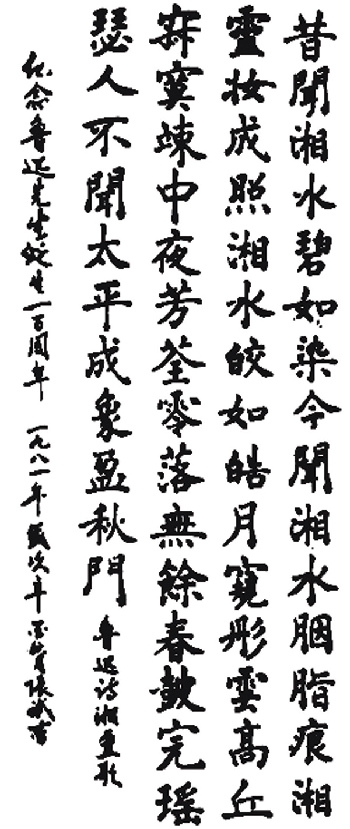 昔聞湘水碧如染今聞湘水胭脂痕湘
靈妆成照湘水皎如皓月窺彤雲高丘
寂寞竦中夜芳荃零落無餘春皷完瑤
瑟人不聞太平成象盈秋門 魯迅诗湘灵歌
纪念魯迅先生诞生一百周年 一九八一年歲次辛酉